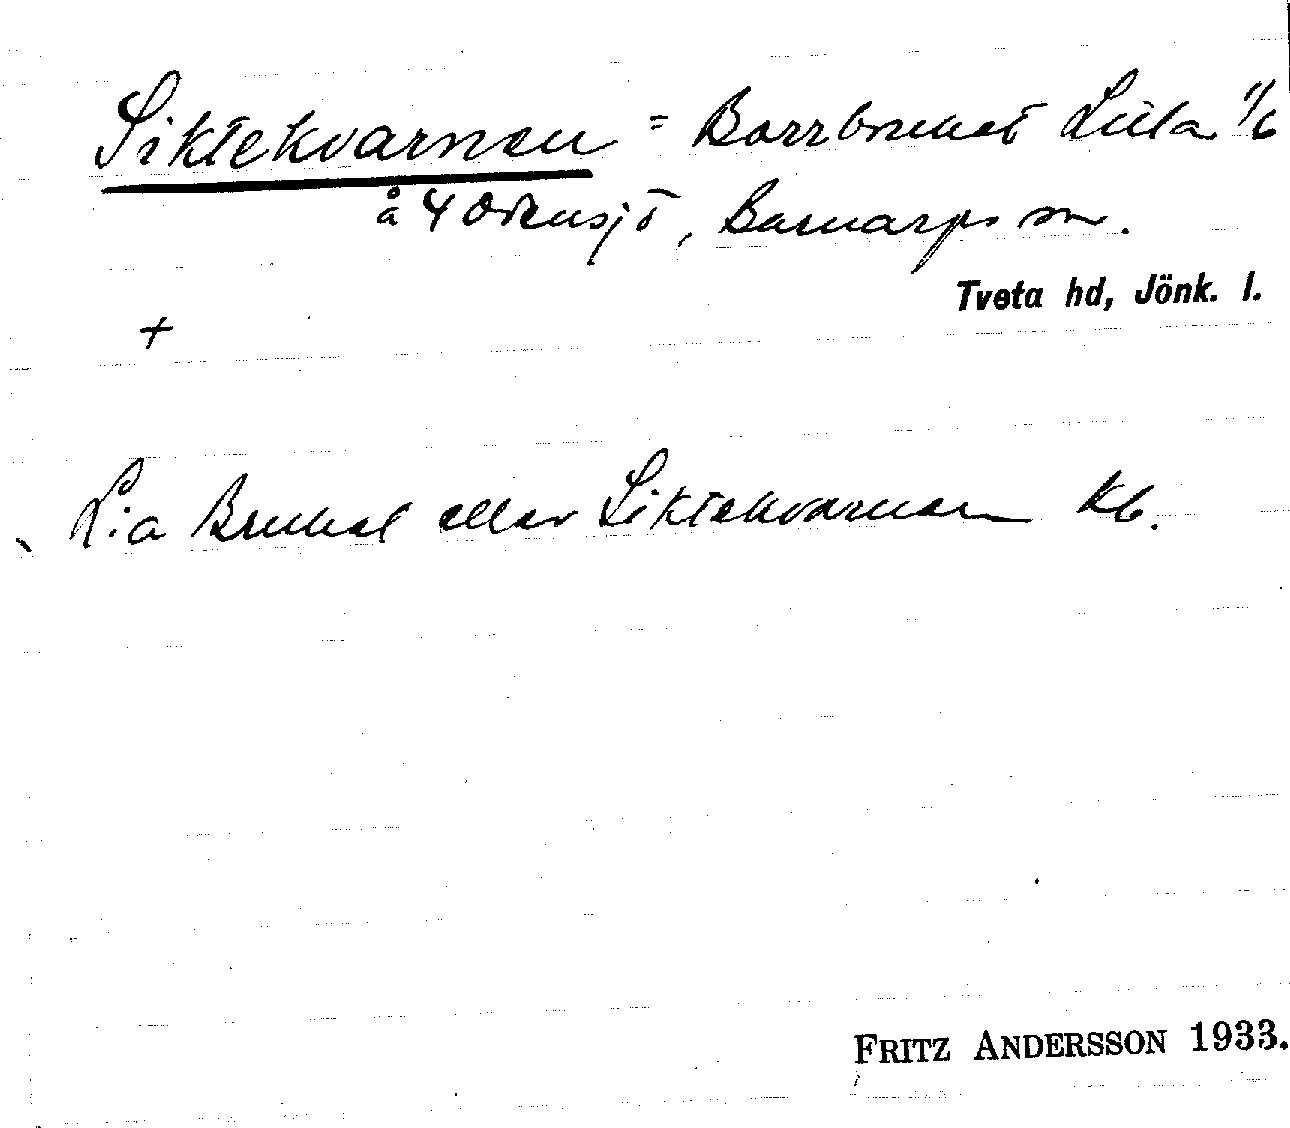 Siktekvarnen = Borrbruket Lilla 1/6
å 4 Ödensjö, Barnarps sn.
Tveta hd, Jönk. l.
+
L:a Bruket eller Siktekvarnen kb.
FRITZ ANDERSSON 1933.